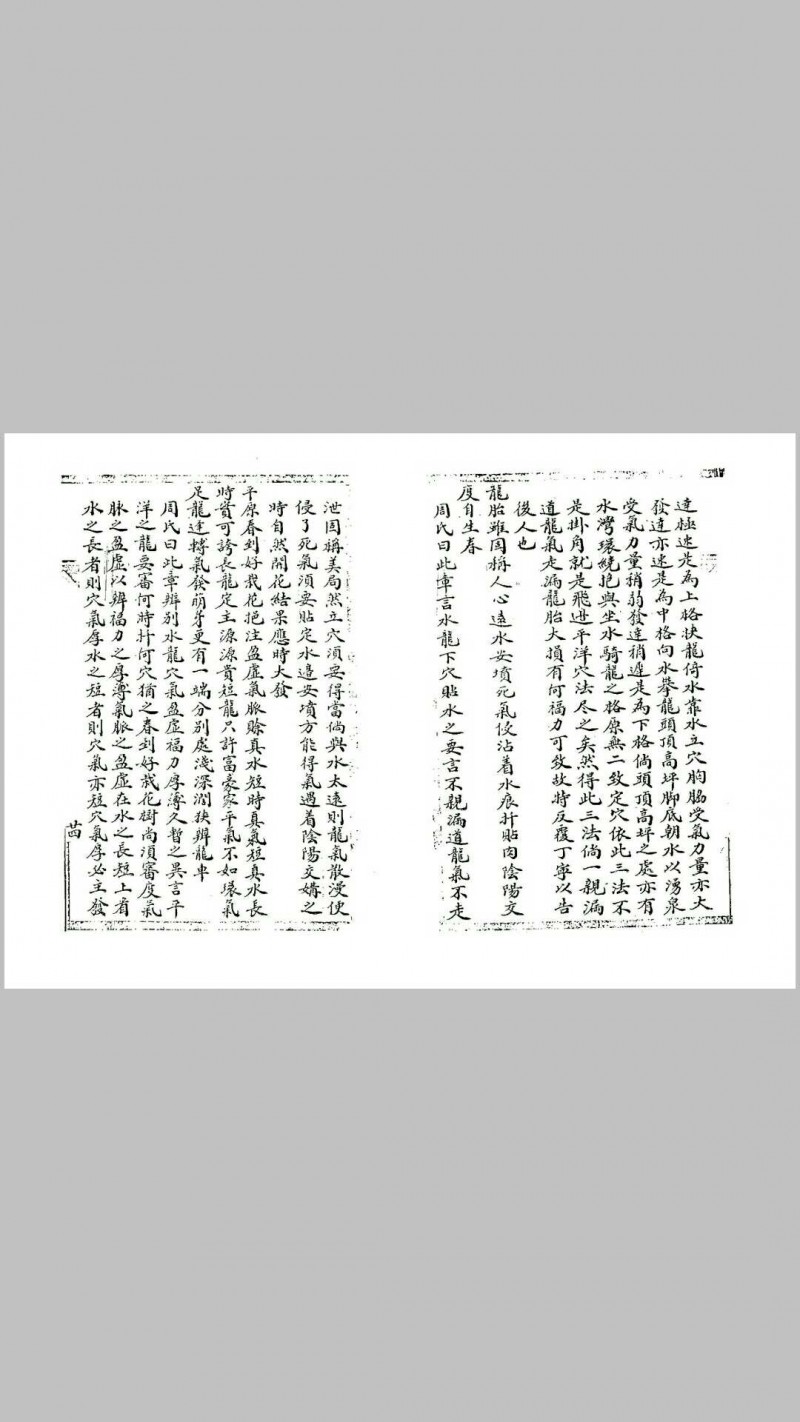 達極速是為上格挾龍倚水靠水立穴胸脇受氣力量亦大
發達亦速是為中格向水攀龍頭頂高坪脚底朝水以湧泉
受氣力量稍弱發達稍遲是為下格倘頭頂高坪之處亦有
水灣環繞抱與坐水騎龍之格原無二致定穴依此三法不
是掛角就是飛邊平洋穴法尽之矣然得此三法倘一親漏
道龍氣走漏龍胎大損有何福力可致故特反覆丁寧以告
後人也
龍胎雖固稱人心遠水安墳死氣侵沾着水痕扦貼肉陰陽交
度自生春
周氏曰此章言水龍下穴貼水之要言不親漏道龍氣不走
泄固稱美局然立穴須要得當倘與水太遠則龍氣散漫使
侵了死氣須要貼定水邊安墳方能得氣遇着陰陽交媾之
時自然開花結果應時大發
平原春到好栽花挹注盈虛氣脈賒真水短時真氣短真水長
時實可誇長龍定主源源貴短龍只許富豪家平氣不如壞氣
足龍逢轉氣發萠芽更有一端分別處淺深濶狹辨龍車
周氏曰此章辨別水龍穴氣盈虛福力厚薄久暫之異言平
洋之龍要審何時扦何穴猶之春到好栽花樹尚須審度氣
脉之盈虛以辨福力之厚薄氣脈之盈虛在水之長短上看
水之長者則穴氣厚水之短者則穴氣亦短穴氣厚必主發